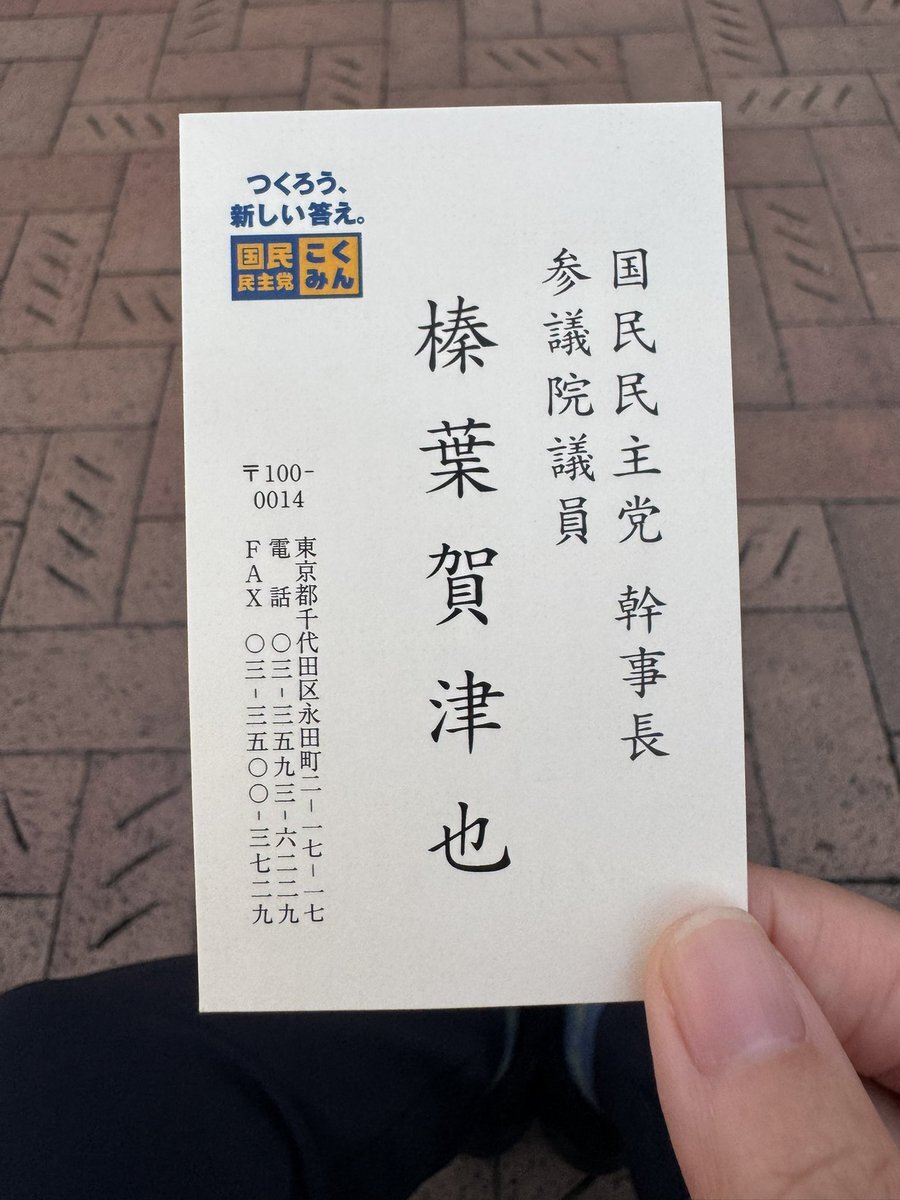 国民民主党 幹事長
参議院議員
榛葉賀津也
つくろう、
新しい答え。
国民
民主党
こく
みん
〒100-
0014
東京都千代田区永田町二-一七-一七
電話 〇三-三五九三-六二二九
FAX 〇三-三五〇〇-三七二九